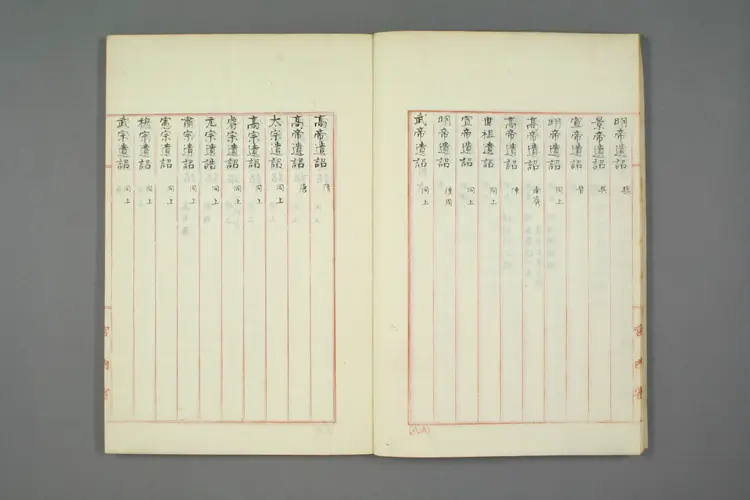 明帝遺詔 魏
景帝遺詔 吳
宣帝遺詔 晉
明帝遺詔 同上
高帝遺詔 南齊
高帝遺詔 陳
世祖遺詔 同上
宣帝遺詔 同上
明帝遺詔 後周
武帝遺詔 同上
高帝遺詔 隋
高帝遺詔 唐
太宗遺詔 同上
高宗遺詔 同上
睿宗遺詔 同上
元宗遺誥 同上
肅宗遺詔 同上
憲宗遺詔 同上
穆宗遺詔 同上
武宗遺詔 同上
宮内省